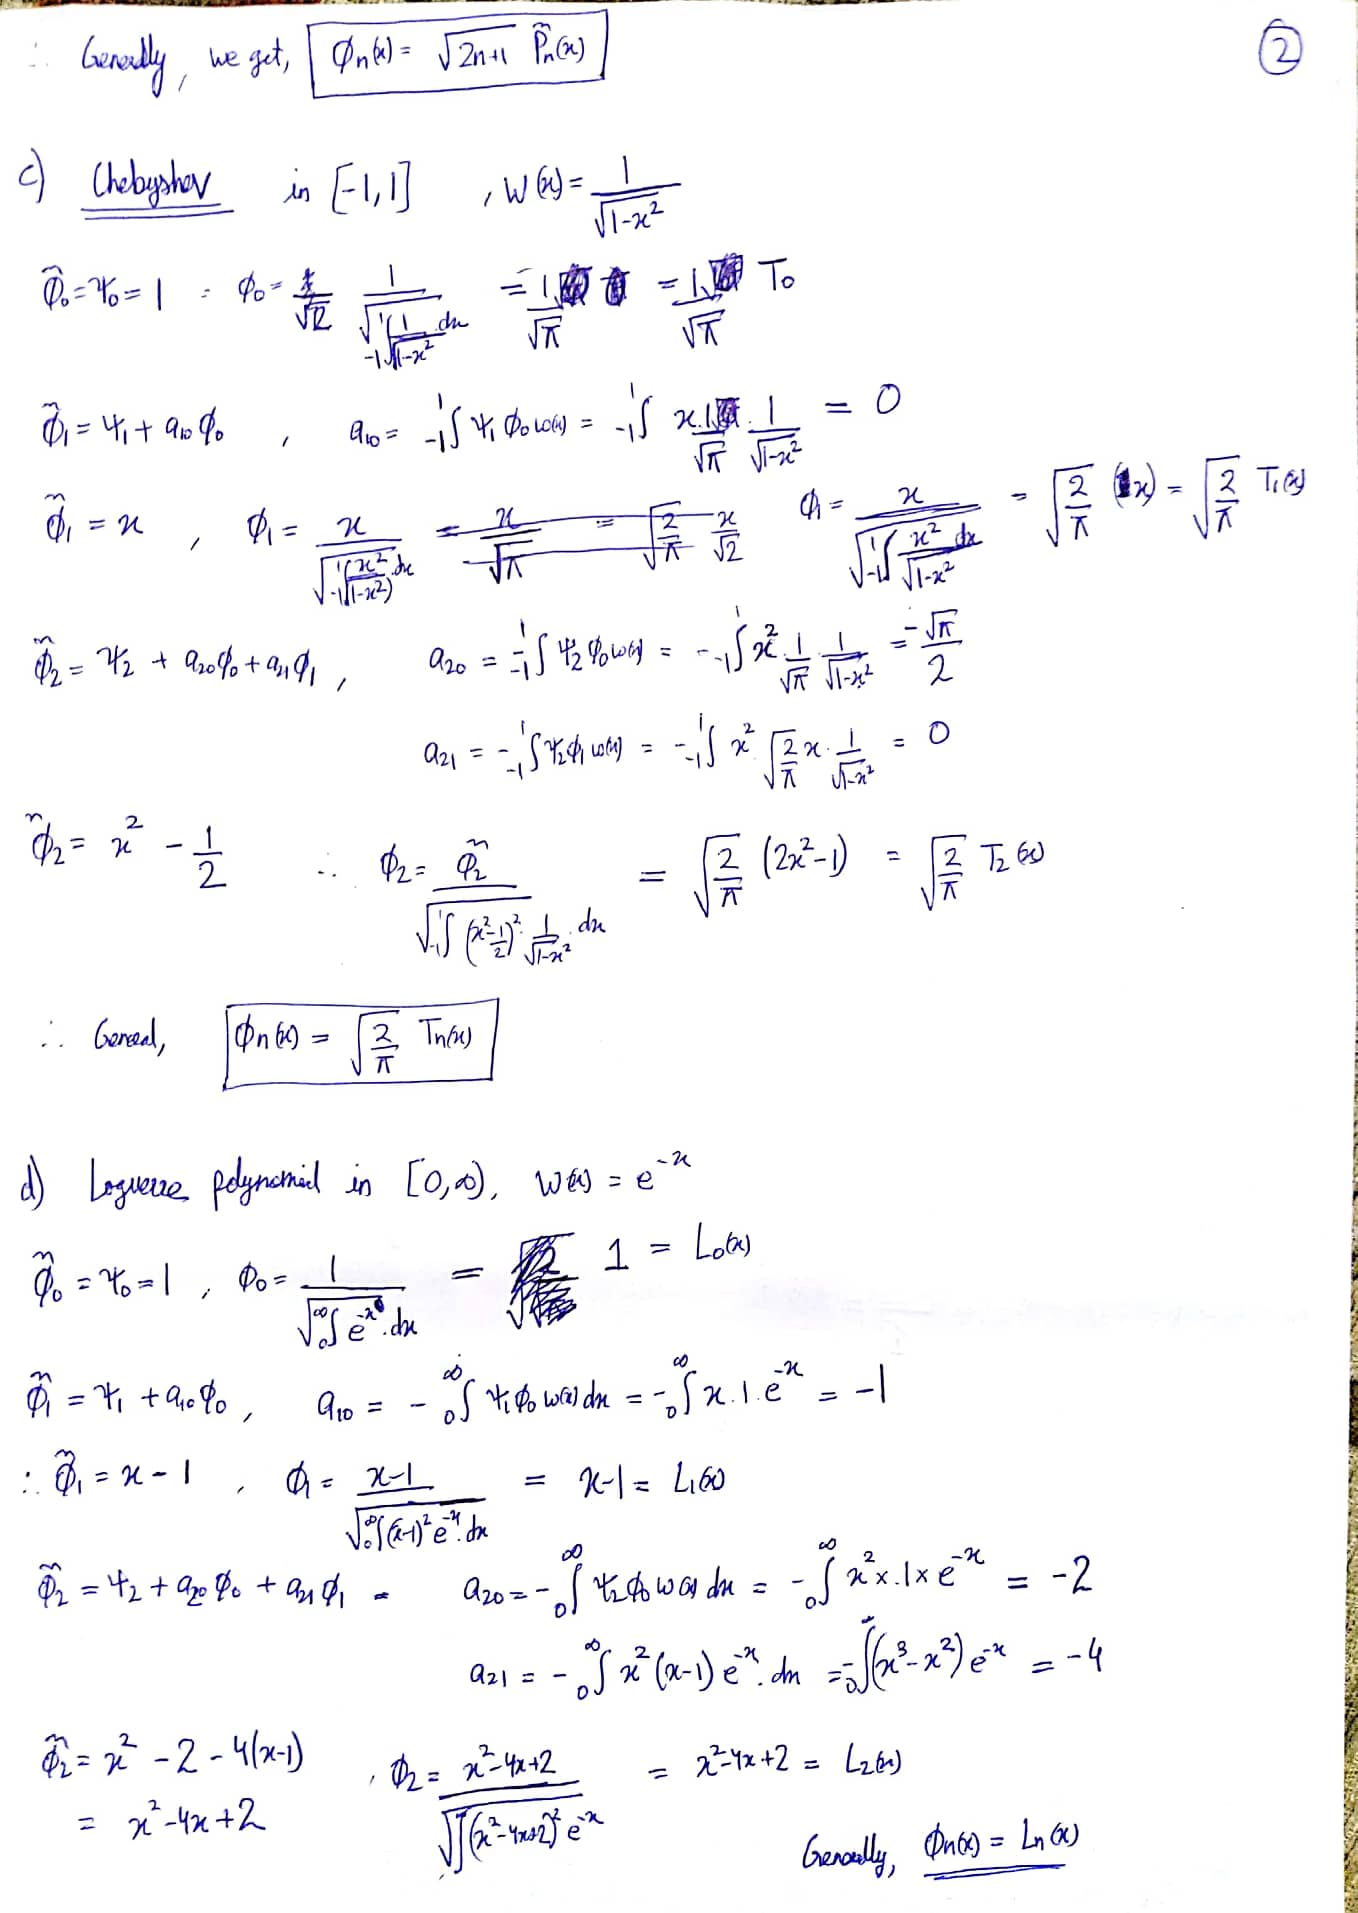 ∴ Generally, we get, Øn(x) = √(2n+1) P̃n(x)
②
c) Chebyshev in [-1,1] , W(x) = 1/√(1-x²)
φ̃₀ = ψ₀ = 1 : φ₀ = 1/√(₋₁∫¹ 1/√(1-x²) dx) = 1/√π = 1/√π T₀
φ̃₁ = ψ₁ + a₁₀φ₀ , a₁₀ = ₋₁∫¹ ψ₁φ₀w(x) = ₋₁∫¹ x.1/√π . 1/√(1-x²) = 0
φ̃₁ = x , φ₁ = x/√(₋₁∫¹ x²/√(1-x²) dx) = x/√π = √(2/π) x/√2 φ₁ = x/√(₋₁∫¹ x²/√(1-x²) dx) = √(2/π) (x) = √(2/π) T₁(x)
φ̃₂ = ψ₂ + a₂₀φ₀ + a₂₁φ₁ , a₂₀ = -₋₁∫¹ ψ₂φ₀w(x) = -₋₁∫¹ x² 1/√π 1/√(1-x²) = -√π/2
a₂₁ = -₋₁∫¹ ψ₂φ₁w(x) = -₋₁∫¹ x² √(2/π) x . 1/√(1-x²) = 0
φ̃₂ = x² - 1/2 ∴ φ₂ = φ̃₂/√(₋₁∫¹ (x²-1/2)² . 1/√(1-x²) . dx) = √(2/π) (2x²-1) = √(2/π) T₂(x)
∴ General, φn(x) = √(2/π) Tn(x)
d) Laguerre polynomial in [0,∞), W(x) = e^-x
φ̃₀ = ψ₀ = 1 , φ₀ = 1/√(₀∫^∞ e^-x . dx) = 1 = L₀(x)
φ̃₁ = ψ₁ + a₁₀φ₀ , a₁₀ = - ₀∫^∞ ψ₁φ₀w(x)dx = -₀∫^∞ x.1.e^-x = -1
∴ φ̃₁ = x-1 , φ₁ = x-1/√(₀∫^∞ (x-1)² e^-x . dx) = x-1 = L₁(x)
φ̃₂ = ψ₂ + a₂₀φ₀ + a₂₁φ₁ = a₂₀ = -₀∫^∞ ψ₂φ₀w(x)dx = -₀∫^∞ x² x.1x e^-x = -2
a₂₁ = -₀∫^∞ x²(x-1)e^-x . dx = -₀∫^∞ (x³-x²)e^-x = -4
φ̃₂ = x² - 2 - 4(x-1) , φ₂ = x²-4x+2/√(∫(x²-4x+2)² e^-x) = x²-4x+2 = L₂(x)
= x²-4x+2
Generally, φn(x) = Ln(x)